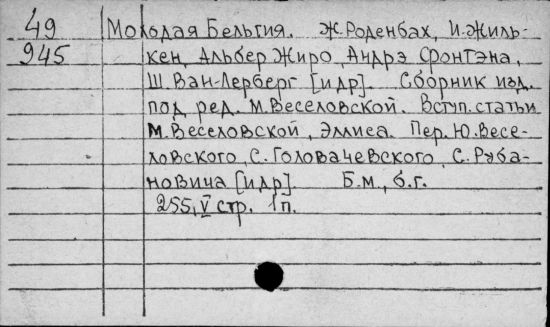 49 Молодая Бельгия. Ж. Роденбах, И. Жиль-
945 кен, Альбер Жиро, Андрэ Фонтэна,
Ш. Ван-Лерберг [и др]. Сборник изд.
под ред. М. Веселовской. Вступ. статьи
М. Веселовской, Эллиса. Пер. Ю. Весе-
ловского, С. Головачевского, С. Руба-
новича [и др]. Б.м., б.г.
255, V стр. 1 п.